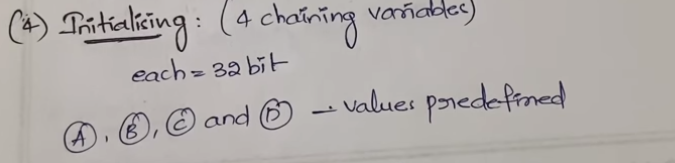 (4) Initialising : (4 chaining variables)
each = 32 bit
(A), (B), (C) and (D) – values predefined